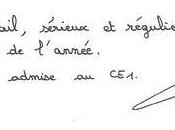 ail, sérieux et régulie
de l'année.
admise au CE1.